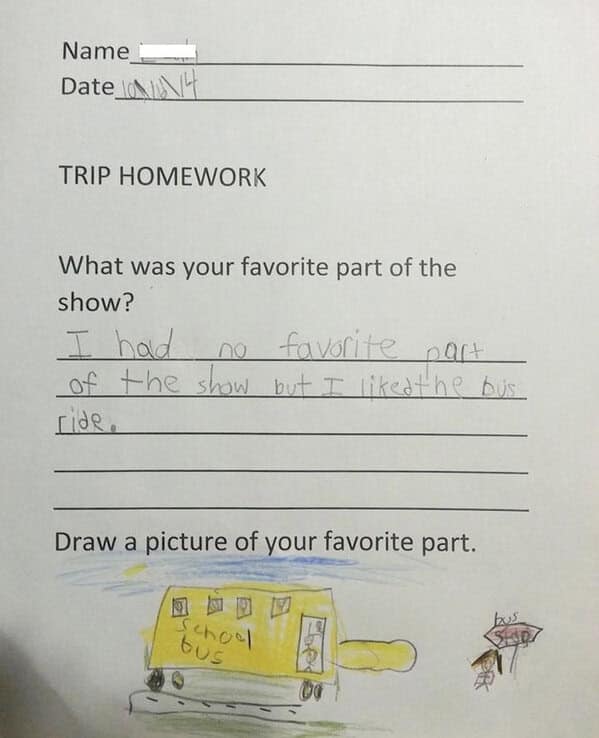 Name
Date 10/16/14
TRIP HOMEWORK
What was your favorite part of the
show?
I had no favorite part
of the show but I liked the bus
ride.
Draw a picture of your favorite part.
School
bus
bus
stop